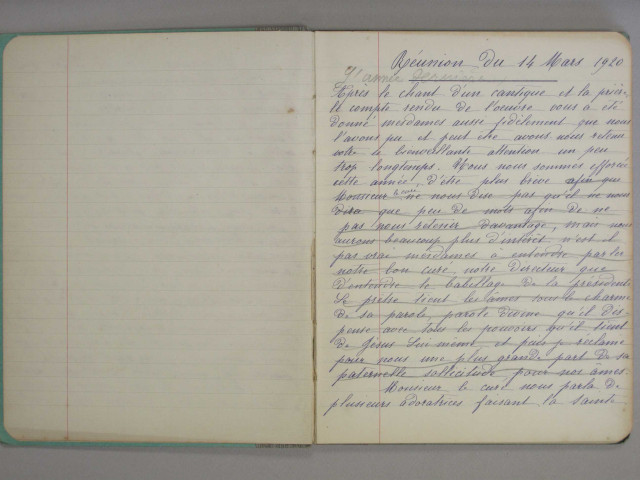 Réunion du 14 Mars 1920
L'année dernière
Après le chant d'un cantique et la prière
le compte rendu de l'oeuvre vous a été
donné mesdames aussi fidèlement que nous
l'avons pu et peut être avons nous retenu
votre bienveillante attention un peu
trop longtemps. Nous nous sommes efforcée
cette année, d'être plus brève afin que
Monsieur le curé ne nous dise pas qu'il ne nous
dira que peu de mots afin de ne
pas nous retenir davantage, mais nous
aurons beaucoup plus d'intérêt n'est il
pas vrai mesdames à entendre parler
notre bon curé notre directeur que
d'entendre le babillage de la présidente
Le prêtre tient les âmes sous le charme
de sa parole, parole divine qu'il dis
pense avec tous les pouvoirs qu'il tient
de Jésus Lui même et puis je réclame
pour nous une plus grande part de sa
paternelle sollicitude pour nos âmes.
Monsieur le curé nous parla de
plusieurs adoratrices faisant la sainte